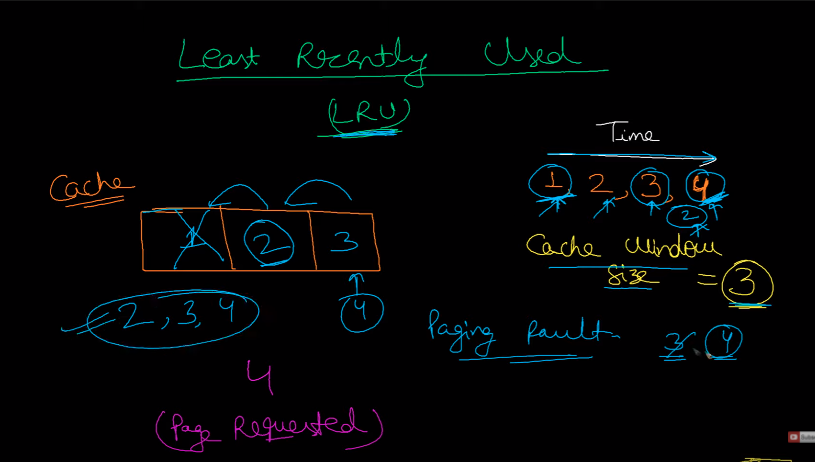 Least Recently Used
(LRU)
Time
1, 2, 3, 4
2
Cache
1 2 3
Cache Window
Size = 3
4
2, 3, 4
Paging Fault - 3 4
4
(Page Requested)